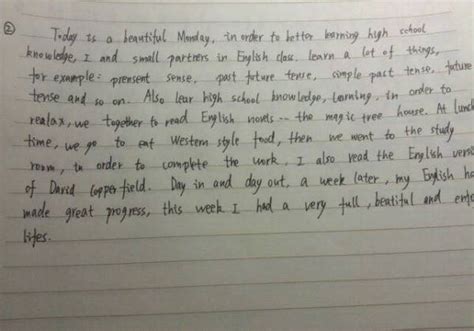 ② Today is a beautiful Monday, in order to better learning high school
knowledge, I and small partners in English class. learn a lot of things,
for example: prensent sense, past future tense, simple past tense, future
tense and so on. Also lear high school knowledge, learning. in order to
realax, we together to read English novels -- the magic tree house. At lunch
time, we go to eat Western style food, then we went to the study
room, in order to complete the work, I also read the English versi
of David Copperfield. Day in and day out, a week later, my English ha
made great progress, this week I had a very full, beatiful and enjo
lifes.